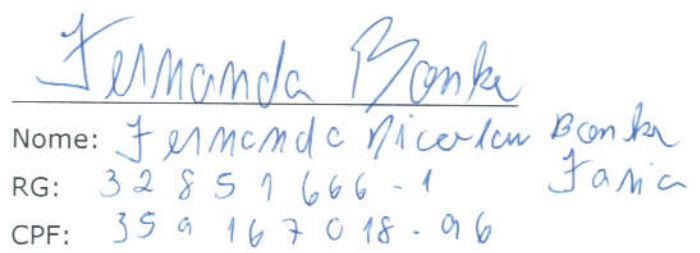 Fernanda Bonke
Nome: Fernanda Nicolau Bonke
Faria
RG: 32851666-1
CPF: 359167018-96